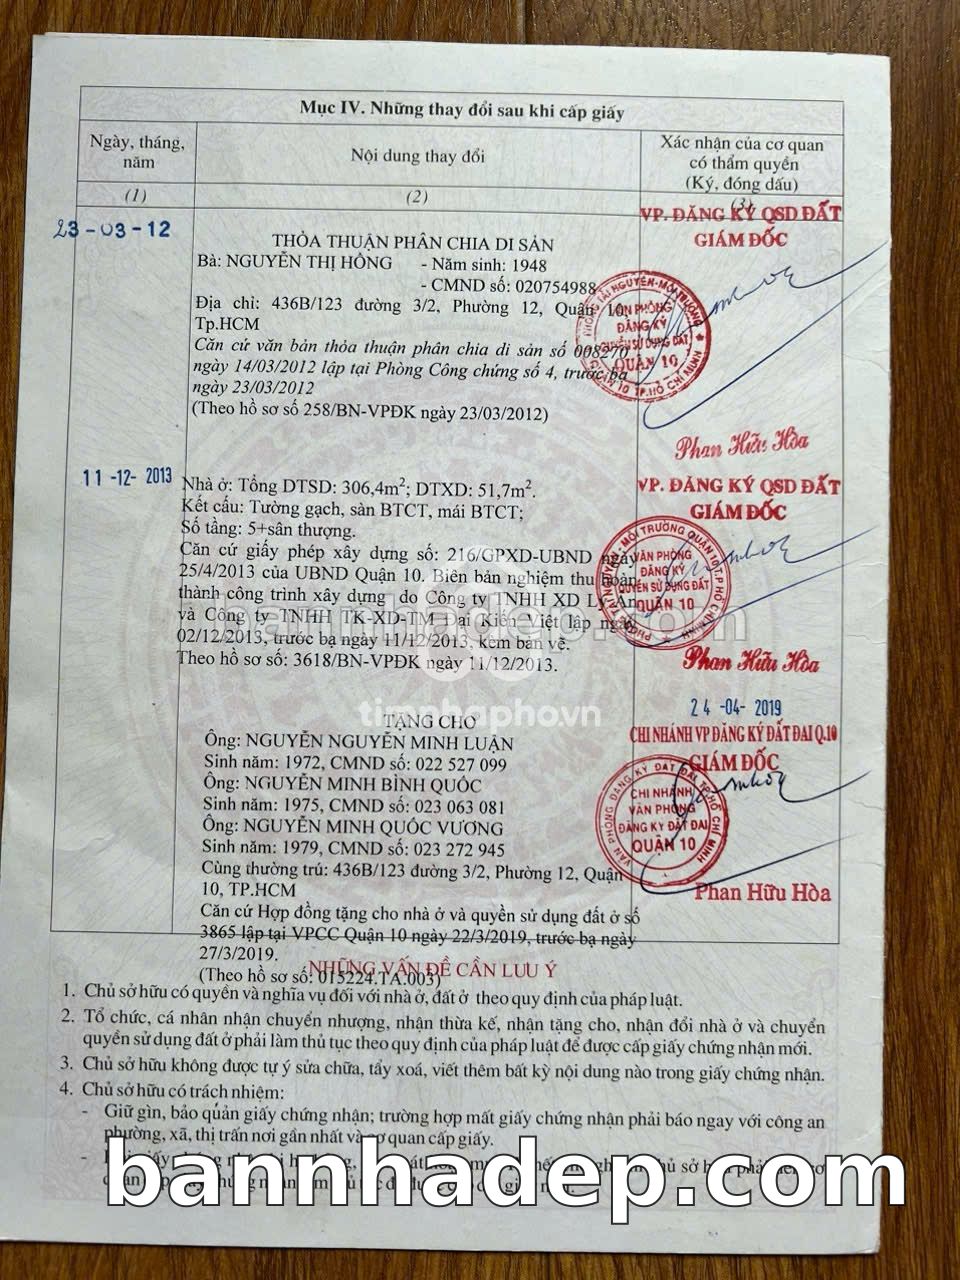 Mục IV. Những thay đổi sau khi cấp giấy
Ngày, tháng, năm
Nội dung thay đổi
Xác nhận của cơ quan có thẩm quyền (Ký, đóng dấu)
(1)
(2)
(3)
23-03-12
VP. ĐĂNG KÝ QSD ĐẤT
GIÁM ĐỐC
THỎA THUẬN PHÂN CHIA DI SẢN
Bà: NGUYỄN THỊ HỒNG - Năm sinh: 1948
- CMND số: 020754988
Địa chỉ: 436B/123 đường 3/2, Phường 12, Quận 10,
Tp.HCM
Căn cứ văn bản thỏa thuận phân chia di sản số 008270
ngày 14/03/2012 lập tại Phòng Công chứng số 4, trước bạ
ngày 23/03/2012
(Theo hồ sơ số 258/BN-VPĐK ngày 23/03/2012)
VĂN PHÒNG
ĐĂNG KÝ
QUYỀN SỬ DỤNG ĐẤT
QUẬN 10
Phan Hữu Hòa
11-12-2013
VP. ĐĂNG KÝ QSD ĐẤT
GIÁM ĐỐC
Nhà ở: Tổng DTSD: 306,4m²; DTXD: 51,7m².
Kết cấu: Tường gạch, sàn BTCT, mái BTCT;
Số tầng: 5+sân thượng.
Căn cứ giấy phép xây dựng số: 216/GPXD-UBND ngày
25/4/2013 của UBND Quận 10. Biên bản nghiệm thu hoàn
thành công trình xây dựng do Công ty TNHH XD Lý An
và Công ty TNHH TK-XD-TM Đại Kiến Việt lập ngày
02/12/2013, trước bạ ngày 11/12/2013, kèm bản vẽ.
Theo hồ sơ số: 3618/BN-VPĐK ngày 11/12/2013.
VĂN PHÒNG
ĐĂNG KÝ
QUYỀN SỬ DỤNG ĐẤT
QUẬN 10
Phan Hữu Hòa
bannhadep.com
timnhapho.vn
24-04-2019
CHI NHÁNH VP ĐĂNG KÝ ĐẤT ĐAI Q.10
GIÁM ĐỐC
TẶNG CHO
Ông: NGUYỄN NGUYỄN MINH LUẬN
Sinh năm: 1972, CMND số: 022 527 099
Ông: NGUYỄN MINH BÌNH QUÓC
Sinh năm: 1975, CMND số: 023 063 081
Ông: NGUYỄN MINH QUÓC VƯƠNG
Sinh năm: 1979, CMND số: 023 272 945
Cùng thường trú: 436B/123 đường 3/2, Phường 12, Quận
10, TP.HCM
Căn cứ Hợp đồng tặng cho nhà ở và quyền sử dụng đất ở số
3865 lập tại VPCC Quận 10 ngày 22/3/2019, trước bạ ngày
27/3/2019.
(Theo hồ sơ số: 015224.TA.003)
VĂN PHÒNG ĐĂNG KÝ ĐẤT ĐAI TP.HỒ CHÍ MINH
CHI NHÁNH
VĂN PHÒNG
ĐĂNG KÝ ĐẤT ĐAI
QUẬN 10
Phan Hữu Hòa
NHỮNG VẤN ĐỀ CẦN LƯU Ý
1. Chủ sở hữu có quyền và nghĩa vụ đối với nhà ở, đất ở theo quy định của pháp luật.
2. Tổ chức, cá nhân nhận chuyển nhượng, nhận thừa kế, nhận tặng cho, nhận đổi nhà ở và chuyển
quyền sử dụng đất ở phải làm thủ tục theo quy định của pháp luật để được cấp giấy chứng nhận mới.
3. Chủ sở hữu không được tự ý sửa chữa, tẩy xoá, viết thêm bất kỳ nội dung nào trong giấy chứng nhận.
4. Chủ sở hữu có trách nhiệm:
- Giữ gìn, bảo quản giấy chứng nhận; trường hợp mất giấy chứng nhận phải báo ngay với công an
phường, xã, thị trấn nơi gần nhất và cơ quan cấp giấy.
bannhadep.com